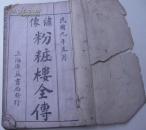 民國九年五月
繪像
粉粧樓全傳
上海廣益書局發行